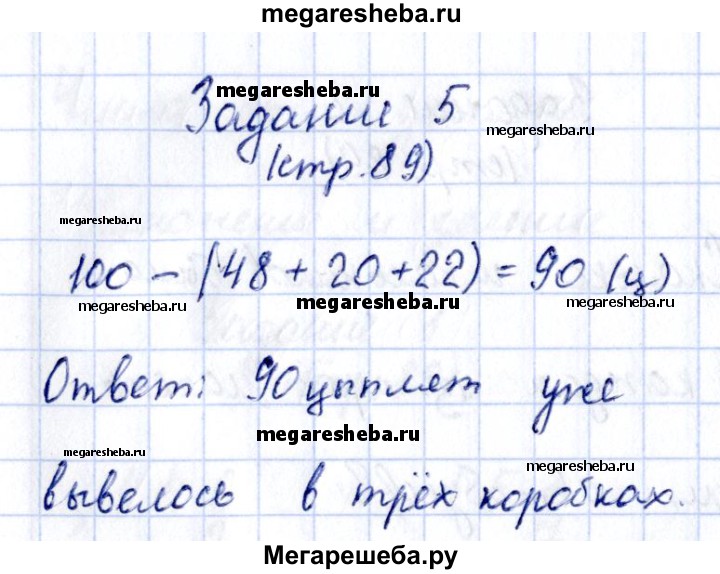 megaresheba.ru
megaresheba.ru
Задание 5
megaresheba.ru
(стр.89)
megaresheba.ru
100 - (48 + 20 + 22) = 90 (ц)
megaresheba.ru
megaresheba.ru
megaresheba.ru
Ответ: 90 цыплят уже
megaresheba.ru
megaresheba.ru
megaresheba.ru
вывелось в трёх коробках.
Мегарешеба.ру